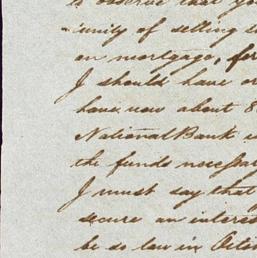 to observe that yo
unity of selling
on mortgage, for
I should have or
have now about 8
National Bank
the funds necessary
I must say that
secure an interes
be so law in